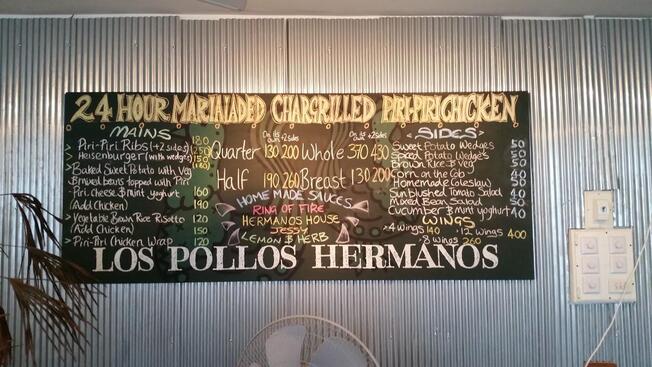 24 HOUR MARINADED CHARGRILLED PIRI-PIRI CHICKEN
MAINS
> Piri-Piri Ribs (+2 sides) 180
250
> Heisenburger (with wedges) 150
> Baked Sweet Potato with Veg
& mixed beans topped with Piri
Piri cheese & mint yoghurt 160
(Add Chicken) 190
> Vegetable Brown Rice Risotto 120
(Add Chicken) 150
> Piri-Piri Chicken Wrap 120
On its own +2 sides
Quarter 130 200
Half 190 260
On its own +2 sides
Whole 370 430
Breast 130 200
HOME MADE SAUCES
RING OF FIRE
HERMANOS HOUSE
JESSY
LEMON & HERB
SIDES
Sweet Potato Wedges 50
Spiced Potato Wedges 50
Brown Rice & Veg
Corn on the Cob
Homemade Coleslaw
Sunblushed Tomato Salad
Mixed Bean Salad
Cucumber & mint yoghurt 40
WINGS
>4 Wings 140 >12 Wings 400
>8 Wings 260
LOS POLLOS HERMANOS